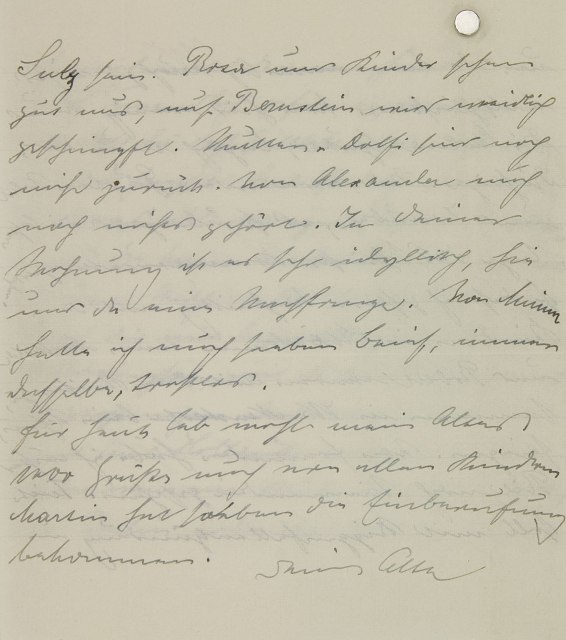 Sulz sein. Rosa und Kinder sehen
gut aus, auf Bernstein wird weidlich
geschimpft. Mutter u. Dolfi sind noch
nicht zurück. Von Alexander auch
noch nichts gehört. In Deiner
Wohnung ist es sehr idyllisch, hie
und da eine Nachfrage. Von Minna
hatte ich auch soeben Brief, immer
dasselbe, trostlos.
Für heute leb wohl mein Alter
1000 Grüße auch von allen Kindern
Martin hat soeben die Einberufung
bekommen. Deine Alte